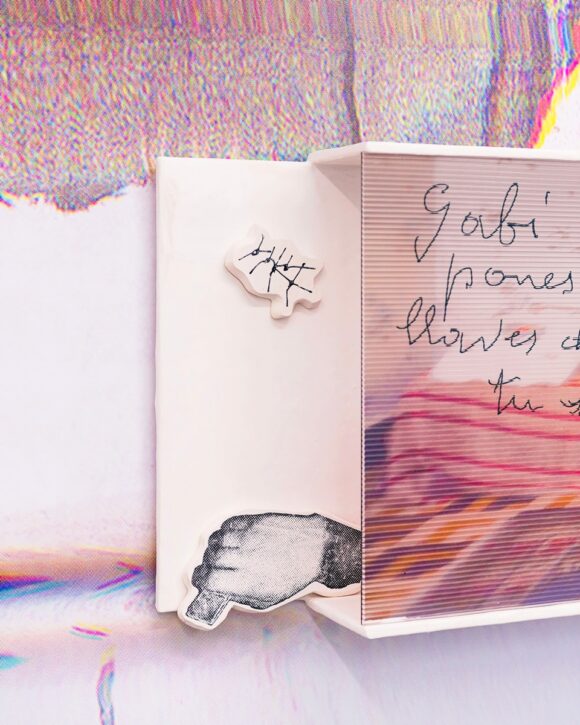 Gabi
pones
llaves
tu